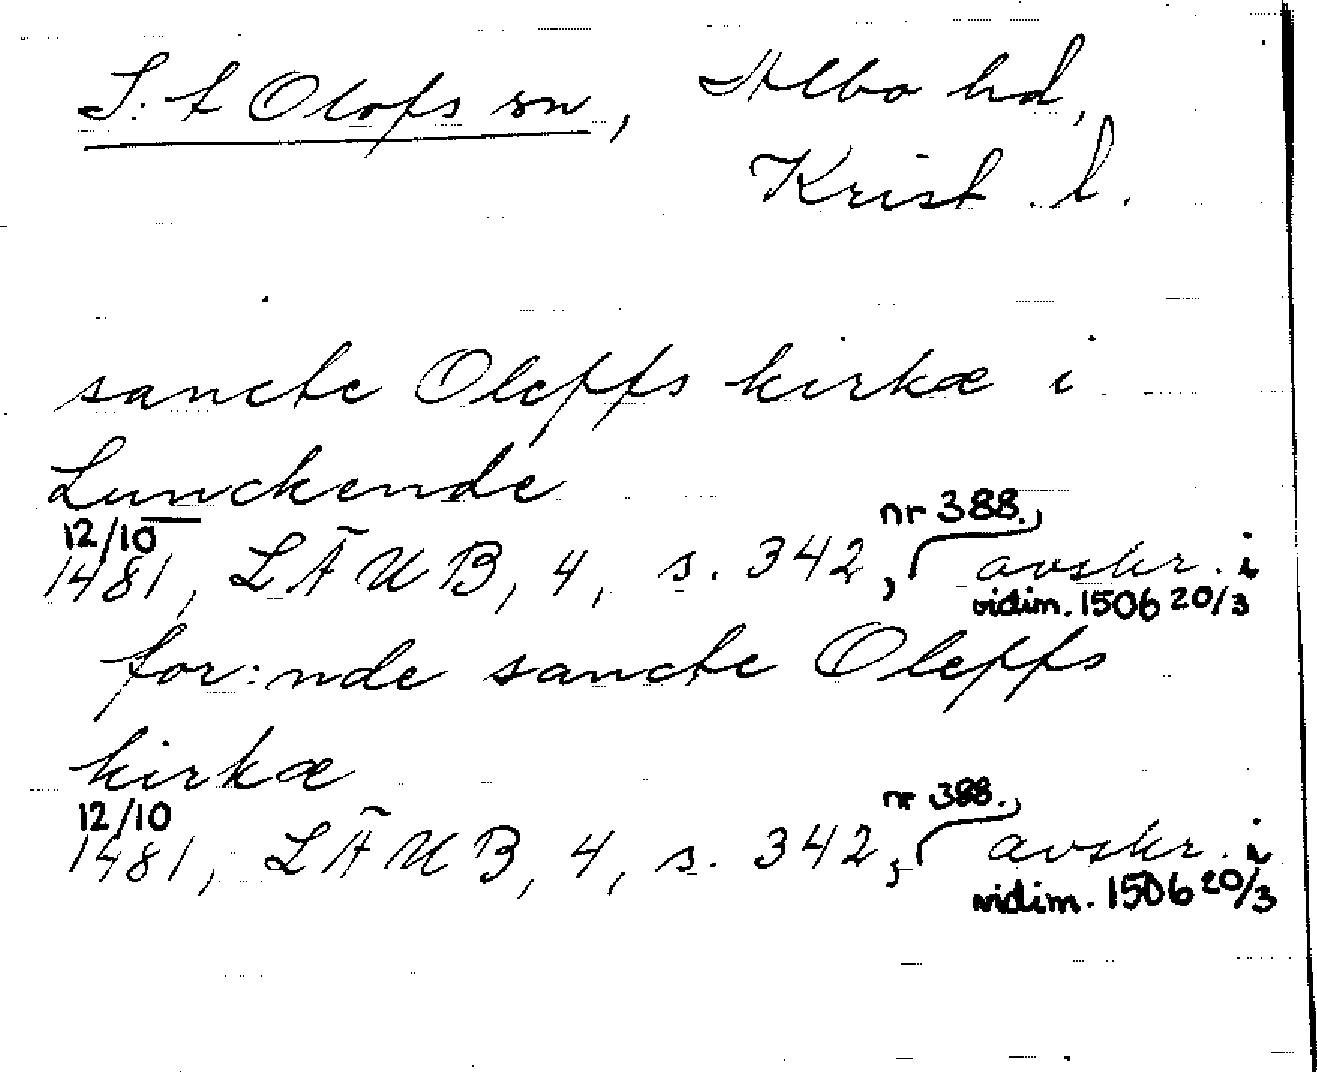 S:t Olofs sn, Albo hd,
Krist. l.
sancte Oleffs kirkæ i
Lunckende
12/10 1481, LÄUB, 4, s. 342, nr 388., avskr. i
vidim. 1506 20/3
for:nde sancte Oleffs
kirkæ
12/10 1481, LÄUB, 4, s. 342, nr 388., avskr. i
vidim. 1506 20/3